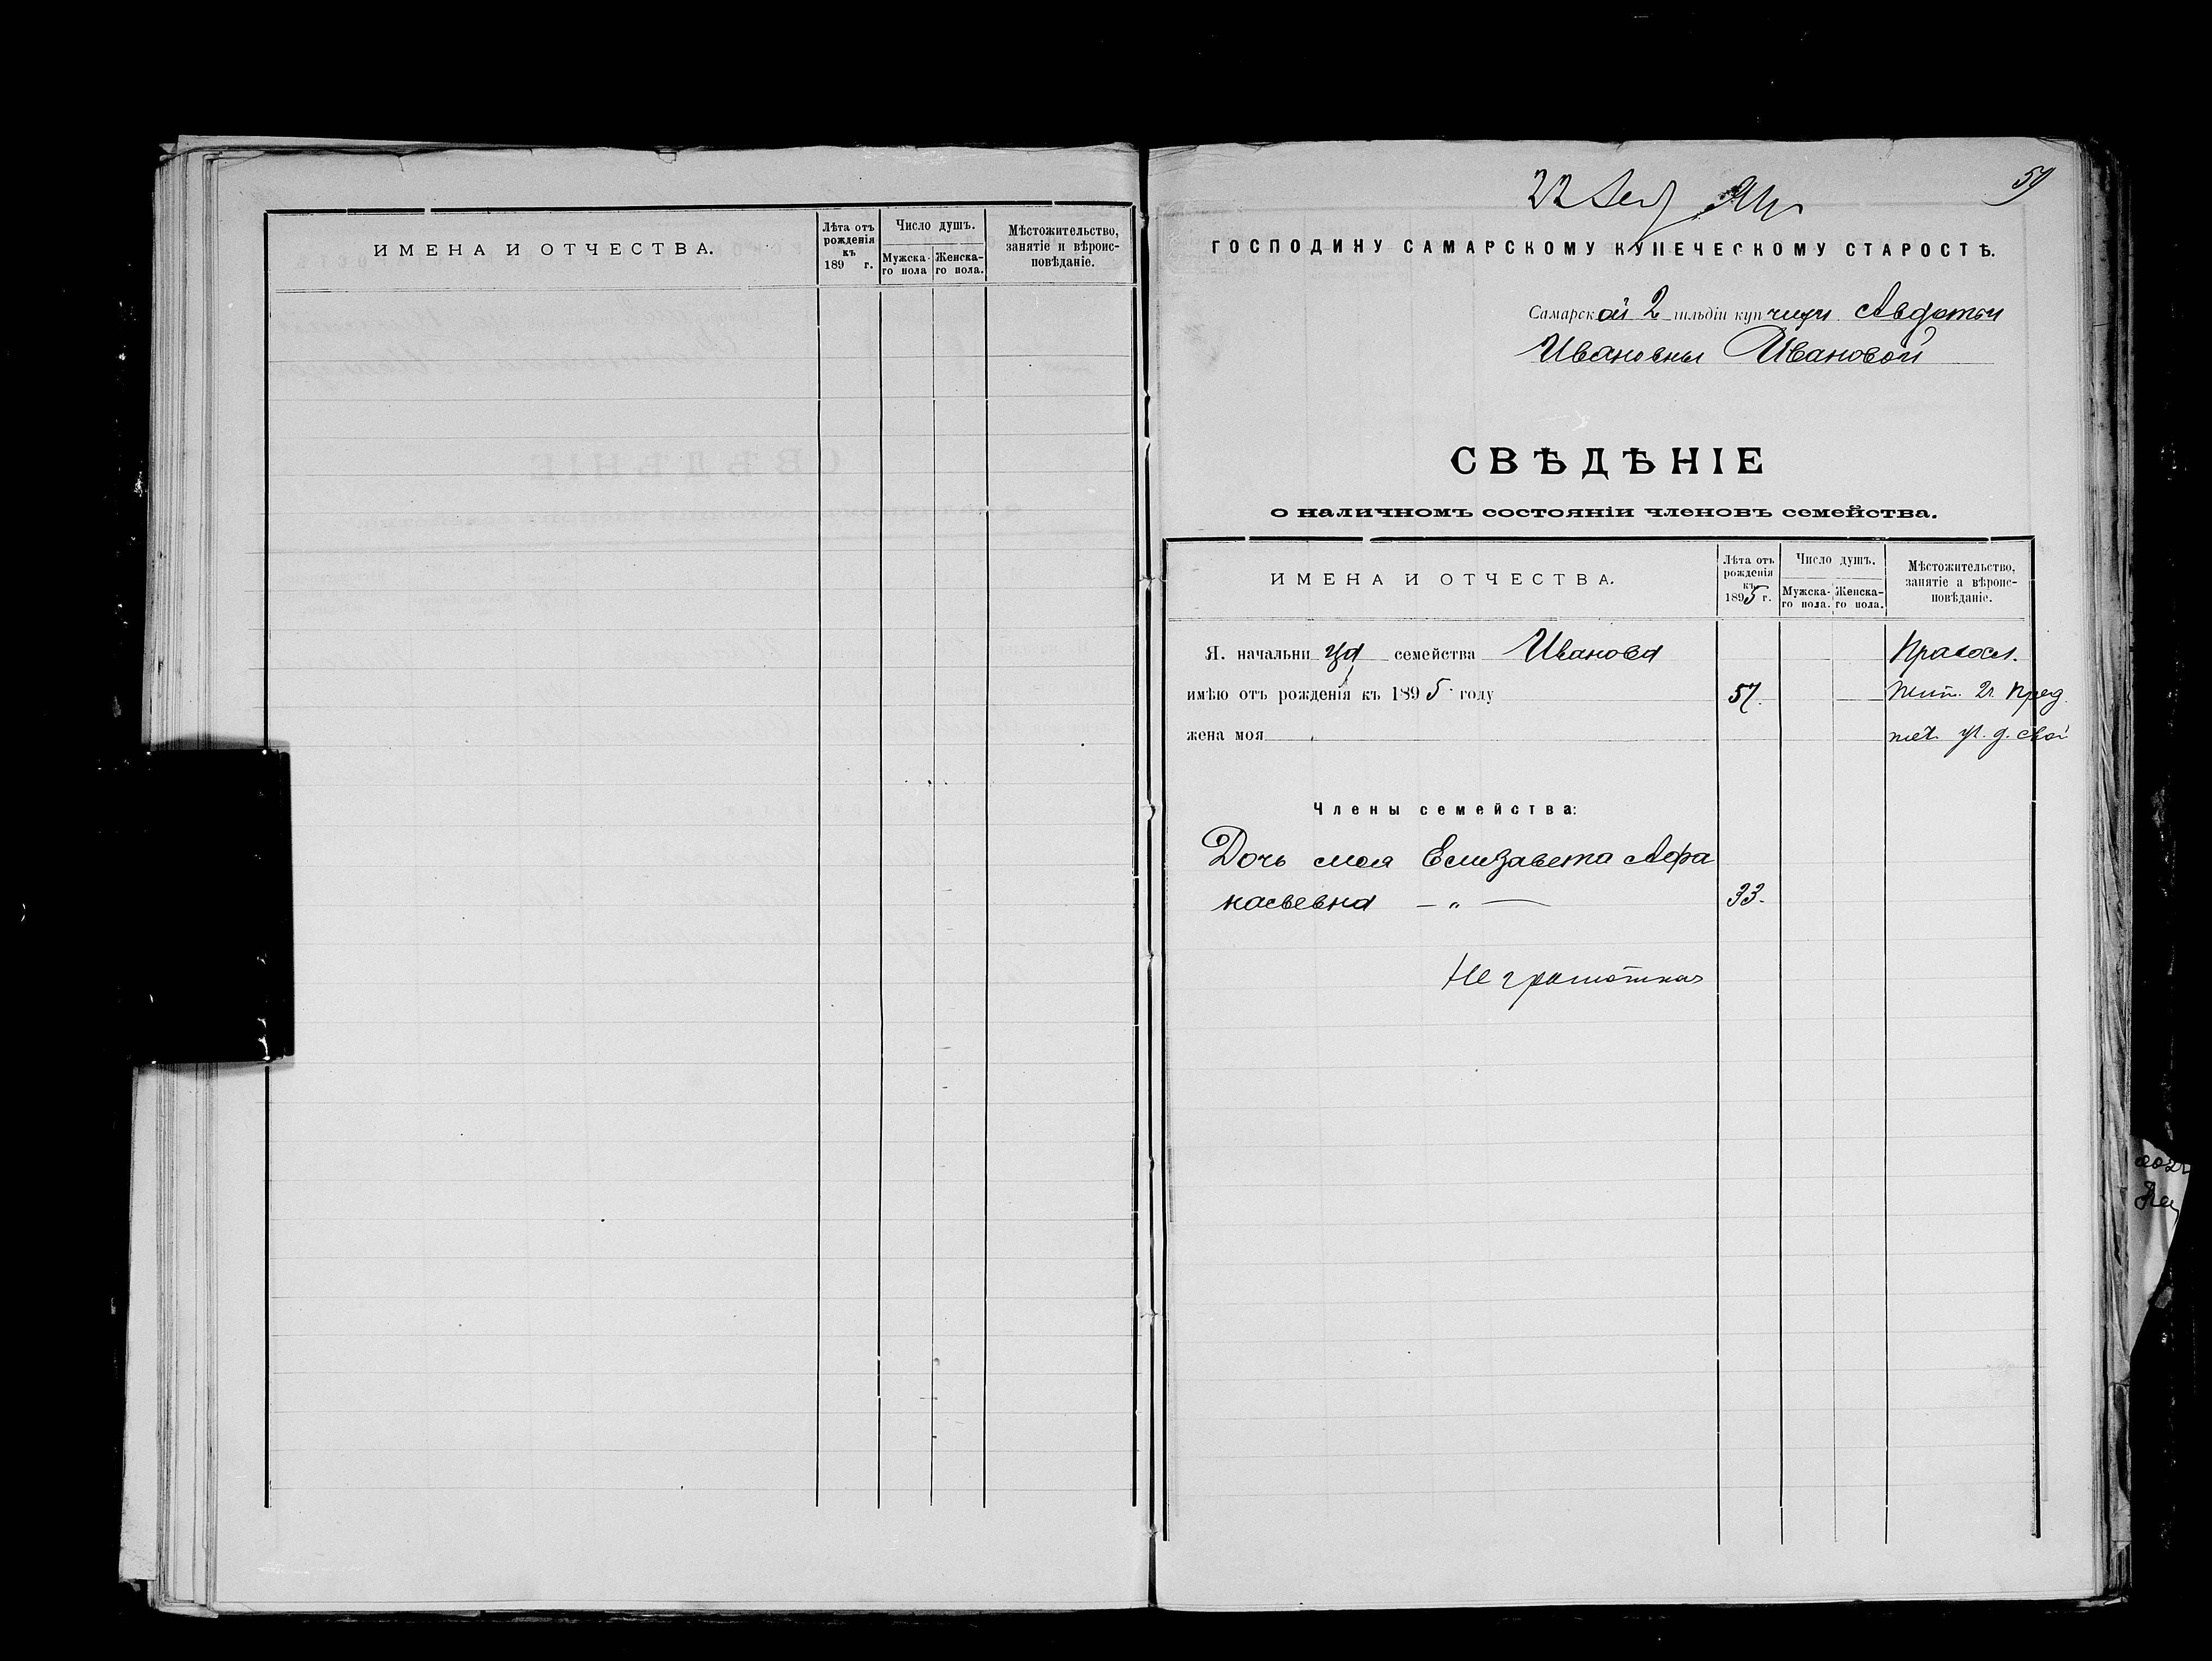 ИМЕНА И ОТЧЕСТВА.
Лѣта отъ рожденія къ 189 г.
Число душъ.
Мужска-го пола
Женска-го пола.
Мѣстожительство, занятіе и вѣроис-повѣданіе.
59
22
ГОСПОДИНУ САМАРСКОМУ КУПЕЧЕСКОМУ СТАРОСТѢ.
Самарской 2 гильдіи купчихи Авдотьи
Ивановны Ивановой
СВѢДѢНІЕ
о наличномъ состояніи членовъ семейства.
ИМЕНА И ОТЧЕСТВА.
Лѣта отъ рожденія къ 1895 г.
Число душъ.
Мужска-го пола.
Женска-го пола.
Мѣстожительство, занятіе а вѣроис-повѣданіе.
Я. начальница семейства Иванова
Правосл.
имѣю отъ рожденія къ 1895 году 57.
жена моя
Члены семейства:
Дочь моя Елизавета Афа
насьевна — „ — 33.
Не грамотная